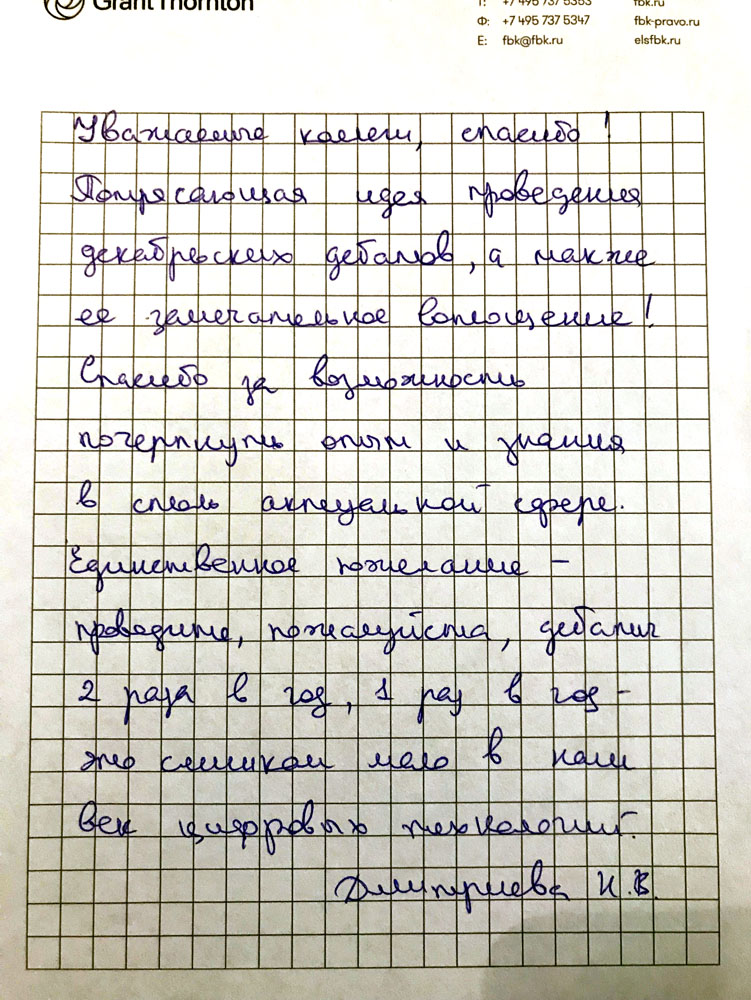 Grant Thornton
Т: +7 495 737 5353 fbk.ru
Ф: +7 495 737 5347 fbk-pravo.ru
E: fbk@fbk.ru elsfbk.ru
Уважаемые коллеги, спасибо!
Потрясающая идея проведения
декабрьских дебатов, а также
ее замечательное воплощение!
Спасибо за возможность
почерпнуть опыт и знания
в столь актуальной сфере.
Единственное пожелание –
проведите, пожалуйста, дебаты
2 раза в год, 1 раз в год –
это слишком мало в наш
век цифровых технологий.
Дмитриева И.В.